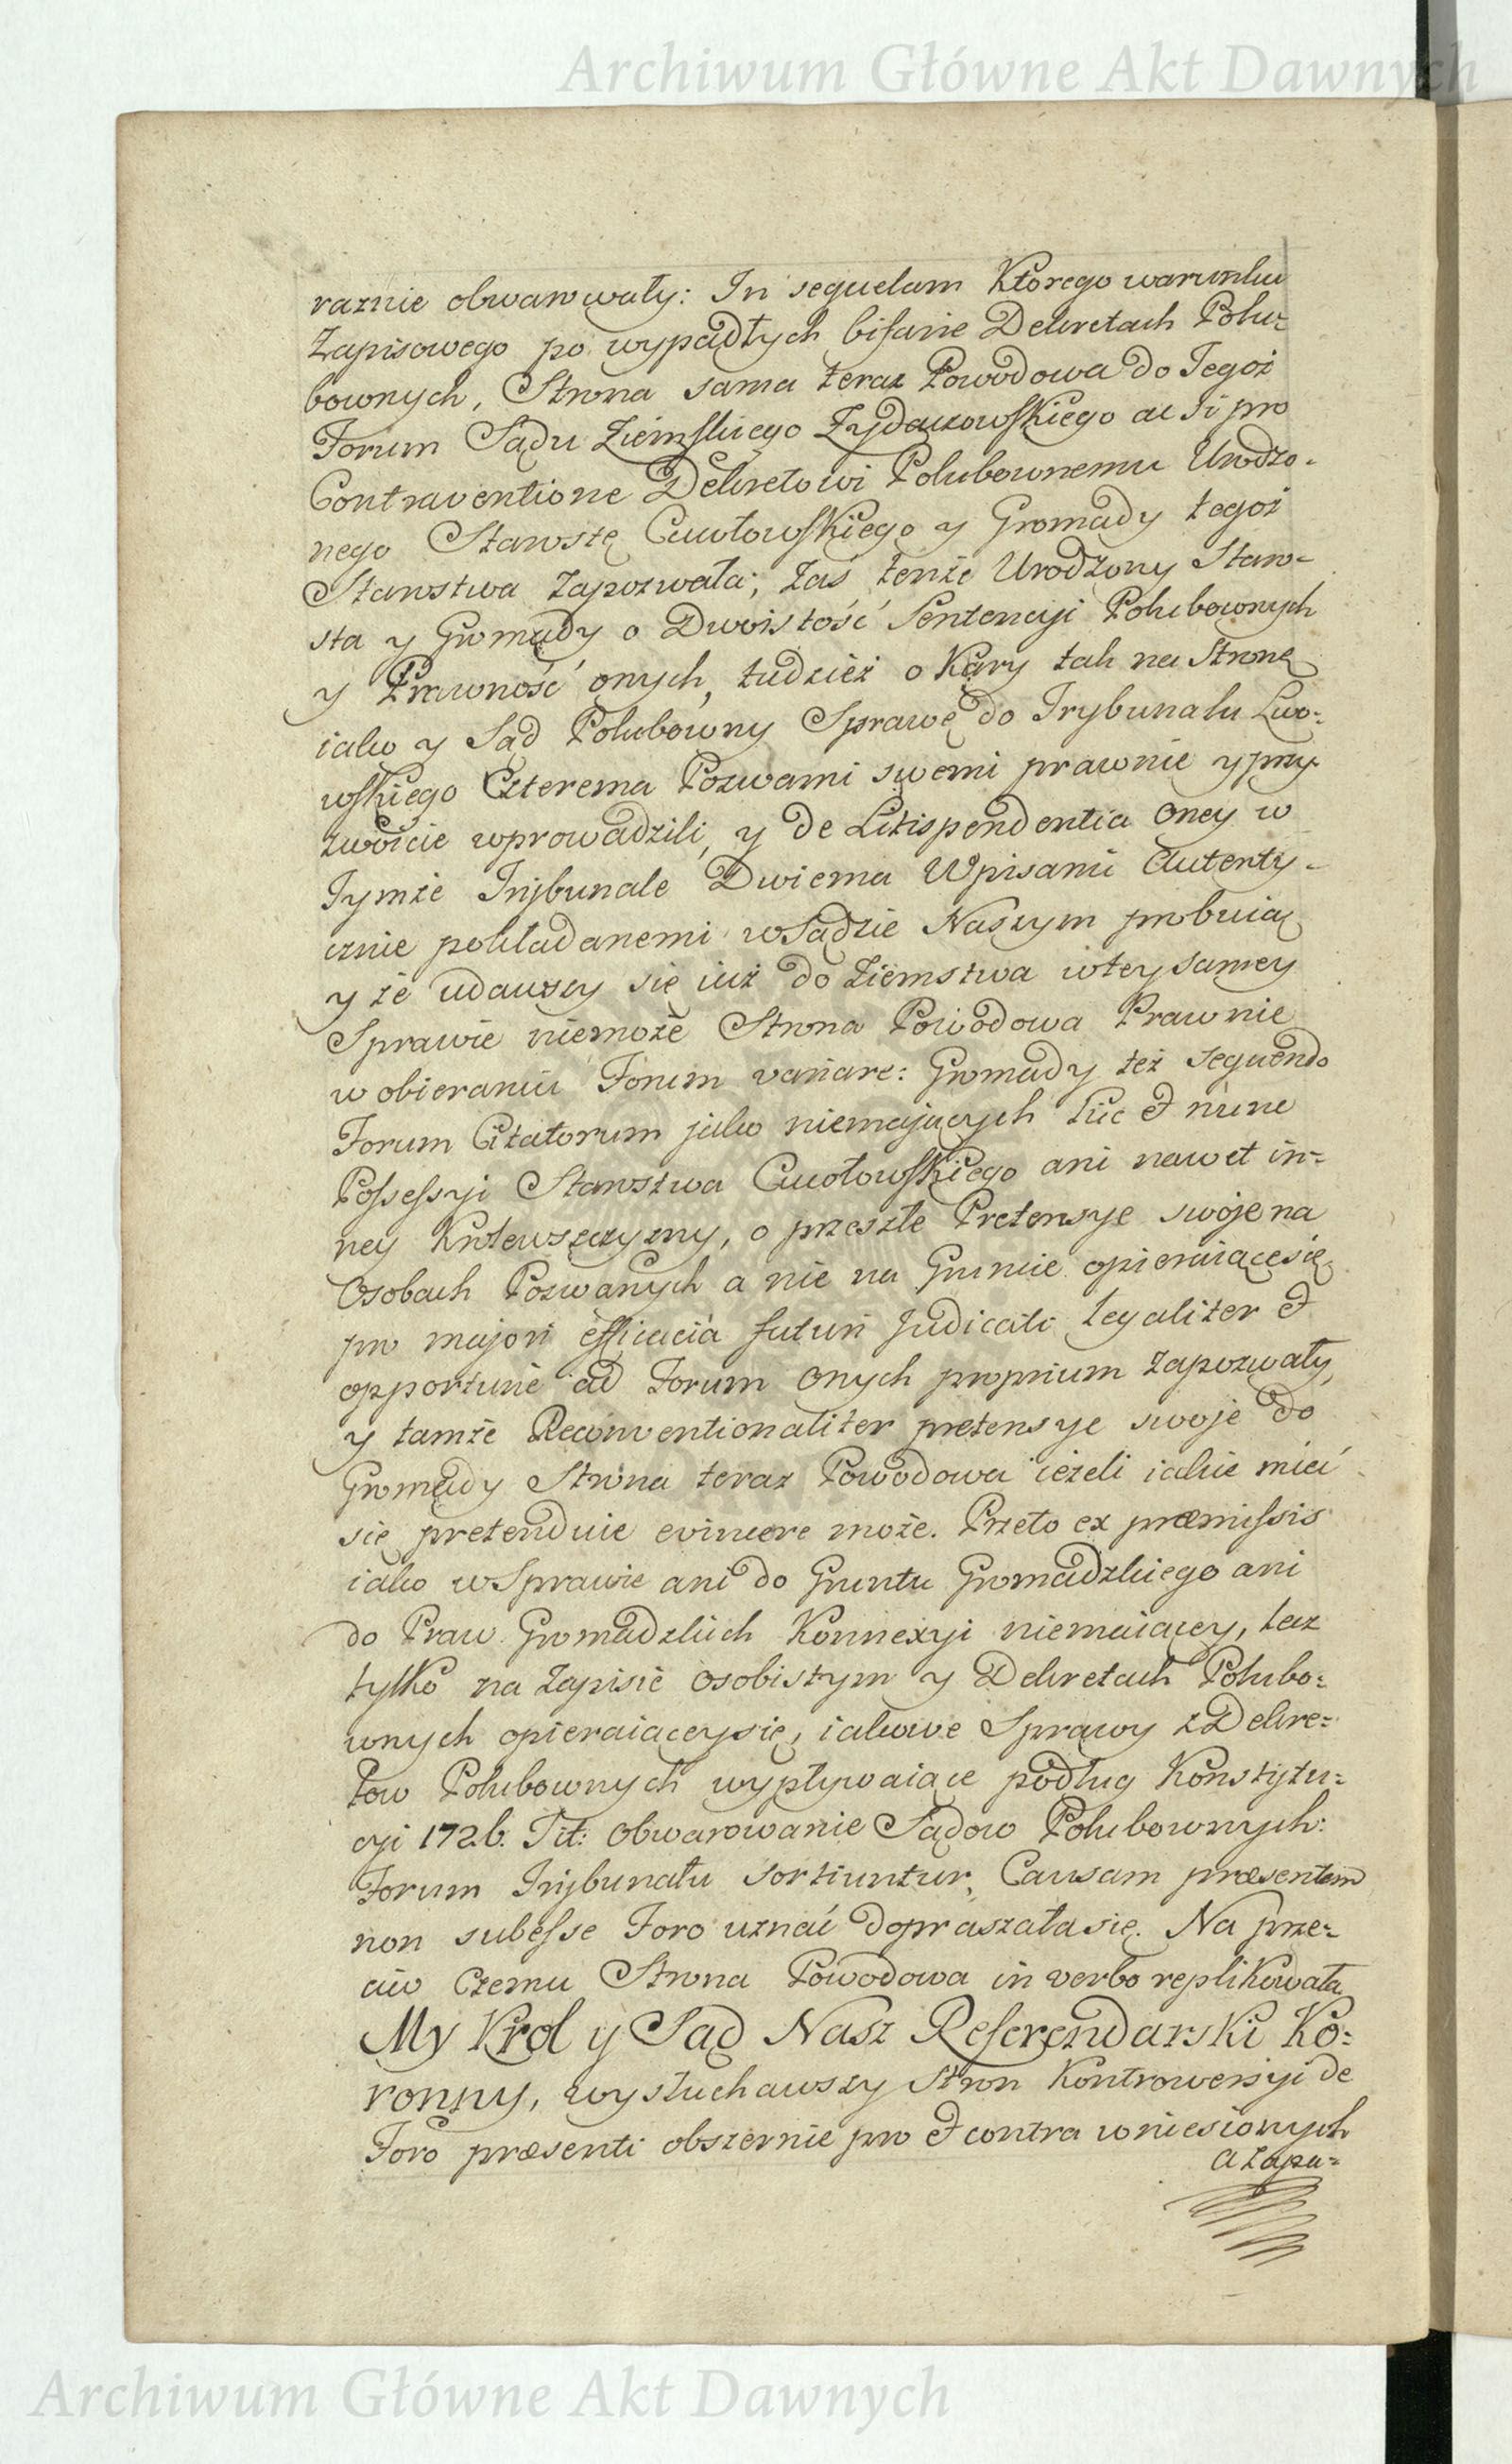 Archiwum Główne Akt Dawnych
raznie obwarowały: In sequelam Ktorego warunku
Zapisowego po wypadłych bifarie Dekretach Polu-
bownych, Strona sama teraz Powodowa do Tegoż
Forum Sądu Ziemskiego Zydaczowskiego ac si pro
Contraventione Dekretowi Polubownemu Urodzo-
nego Starostę Cucułowskiego y Gromady tegoż
Starostwa Zapozwała; Zaś tenże Urodzony Staro-
sta y Gromady o Dwoistość Sentencyi Polubownych
y Prawność onych, tudzież o Kary tak na Stronę
iako y Sąd Polubowny Sprawę do Trybunału Lwo-
wskiego Czterema Pozwami swemi prawnie y przy-
zwoicie wprowadzili, y de Litispendentia oney w
Tymże Trybunale Dwiema Wpisami Autenty-
cznie pokładanemi w Sądzie Naszym probuią
y że udawszy się iuż do Ziemstwa w tey samey
Sprawie niemoże Strona Powodowa Prawnie
w obieraniu Forum variare: Gromady też sequendo
Forum Citatorum jako niemających hic et nunc
Possessyi Starostwa Cucułowskiego ani nawet in-
ney Krolewszczyzny, o przeszłe Pretensye swoje na
Osobach Pozwanych a nie na Gruncie opieraiące się
pro majori efficacia futuri Judicati legaliter et
opportune ad Forum Onych proprium zapozwały,
y tamże Reconventionaliter pretensye swoje do
Gromady Strona teraz Powodowa ieżeli iakie mieć
się pretenduie evincere może. Przeto ex præmissis
iako w Sprawie ani do Gruntu Gromadzkiego ani
do Praw Gromadzkich Konnexyi niemaiącey, lecz
tylko na Zapisie osobistym y Dekretach Polubo-
wnych opieraiącey się, iakowe Sprawy z Dekre-
tow Polubownych wypływaiące podług Konstytu-
cyi 1726. Tit: Obwarowanie Sądow Polubownych:
Forum Trybunału sortiuntur, Causam præsentem
non subesse Foro uznać dopraszała się. Na prze-
ciw Czemu Strona Powodowa in verbo replikowała
My Krol y Sąd Nasz Referendarski Ko-
ronny, wysłuchawszy Stron Kontrowersyi de
Foro præsenti obszernie pro et contra wniesionych
a zapa-
Archiwum Główne Akt Dawnych